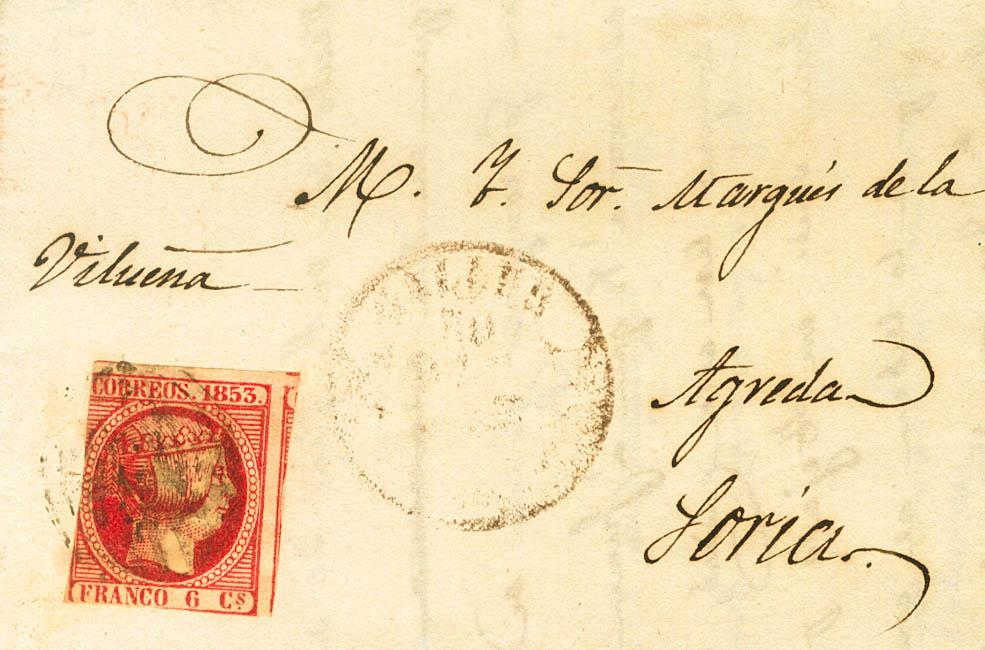 M. Y. Sor. Marqués de la
Vilueña
Agreda
Soria
CORREOS. 1853.
FRANCO 6 Cs